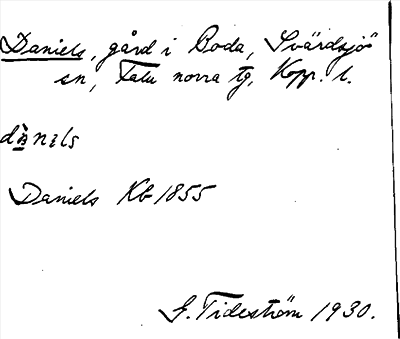 Daniels, gård i Boda, Svärdsjö
sn, Falu norra tg, Kopp. l.
dànils
Daniels Kb 1855
G. Tideström 1930.